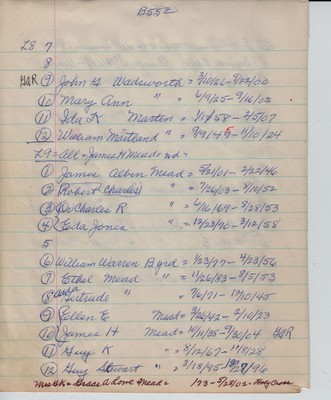 B552
L8 7
8
GAR (9) John G Wadsworth = 3/10/26-9/22/00
(10) Mary Ann " = 6/9/25-9/16/03
(11) Ida K Marten = 1/17/58-2/5/07
(12) William Maitland " = 9/9/45-4/10/24
L9=All=James H Mead=
(1) James Albin Mead = 5/21/01-2/22/46
(2) Robert (Charles) " = 7/26/03-8/10/52
(3) Dr Charles R " = 6/16/69-8/28/53
(4) Eda Jones " = 12/23/70-3/12/58
5
(6) William Warren Byrd = 1/23/77-4/23/56
(7) Ethel Mead " = 11/26/83-8/5/53
(8) Gertrude " = 7/6/71-12/10/45
(9) Ellen E Mead = 3/26/42-2/10/23
(10) James H Mead = 10/11/35-9/30/04 GAR
(11) Guy K " = 8/12/67-11/9/28
(12) Guy Stewart " = 2/18/95- /96
Mrs GK = Grace A Lowe Mead = 173-5/25/02-Holy Cross